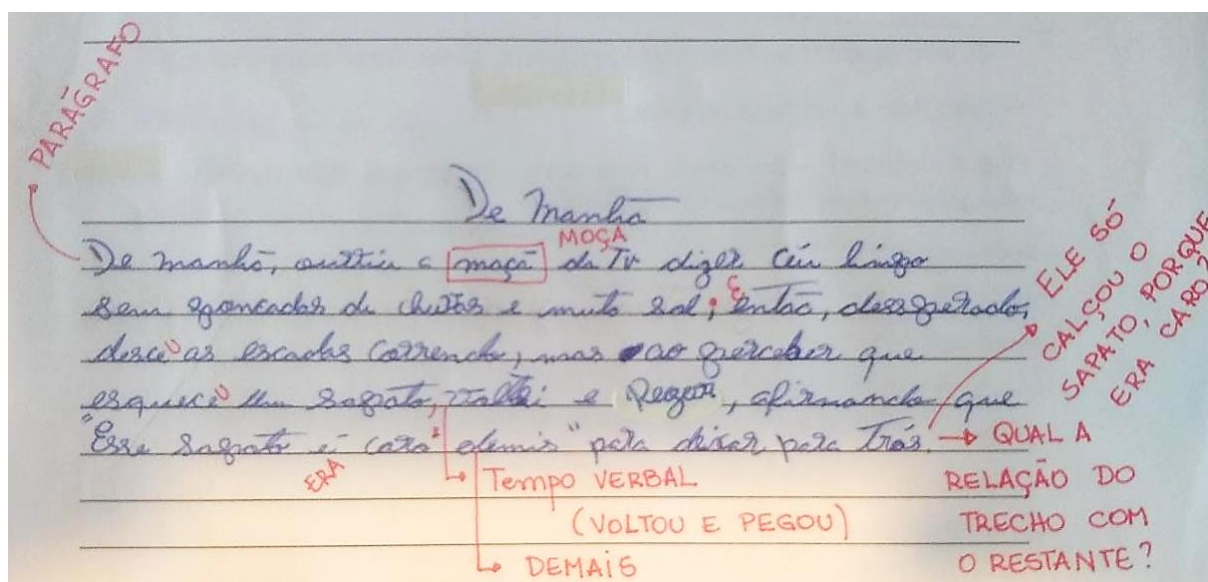 PARÁGRAFO
De Manhã
MOÇA
De manhã, outtiu a maçã da Tv dizer Céu limpo
sem pancadas de chuvas e muito sol; então, desesperado,
E
desceu as escadas correndo, mas ao perceber que
esqueceu um sapato, voltei e Pegou, afirmando que
"Esse sapato é caro" demis" para dixar para Trás.
ERA
Tempo VERBAL
(VOLTOU E PEGOU)
DEMAIS
ELE SÓ
CALÇOU O
SAPATO, PORQUE
ERA CARO?
QUAL A
RELAÇÃO DO
TRECHO COM
O RESTANTE?